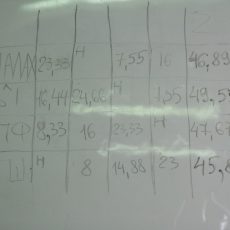 Σ
23,33 H 7,55 16 46,89
16,44 24,66 H 7,55 49,5
ПФ 8,33 16 23,33 H 47,67
H 8 14,88 23 45,8